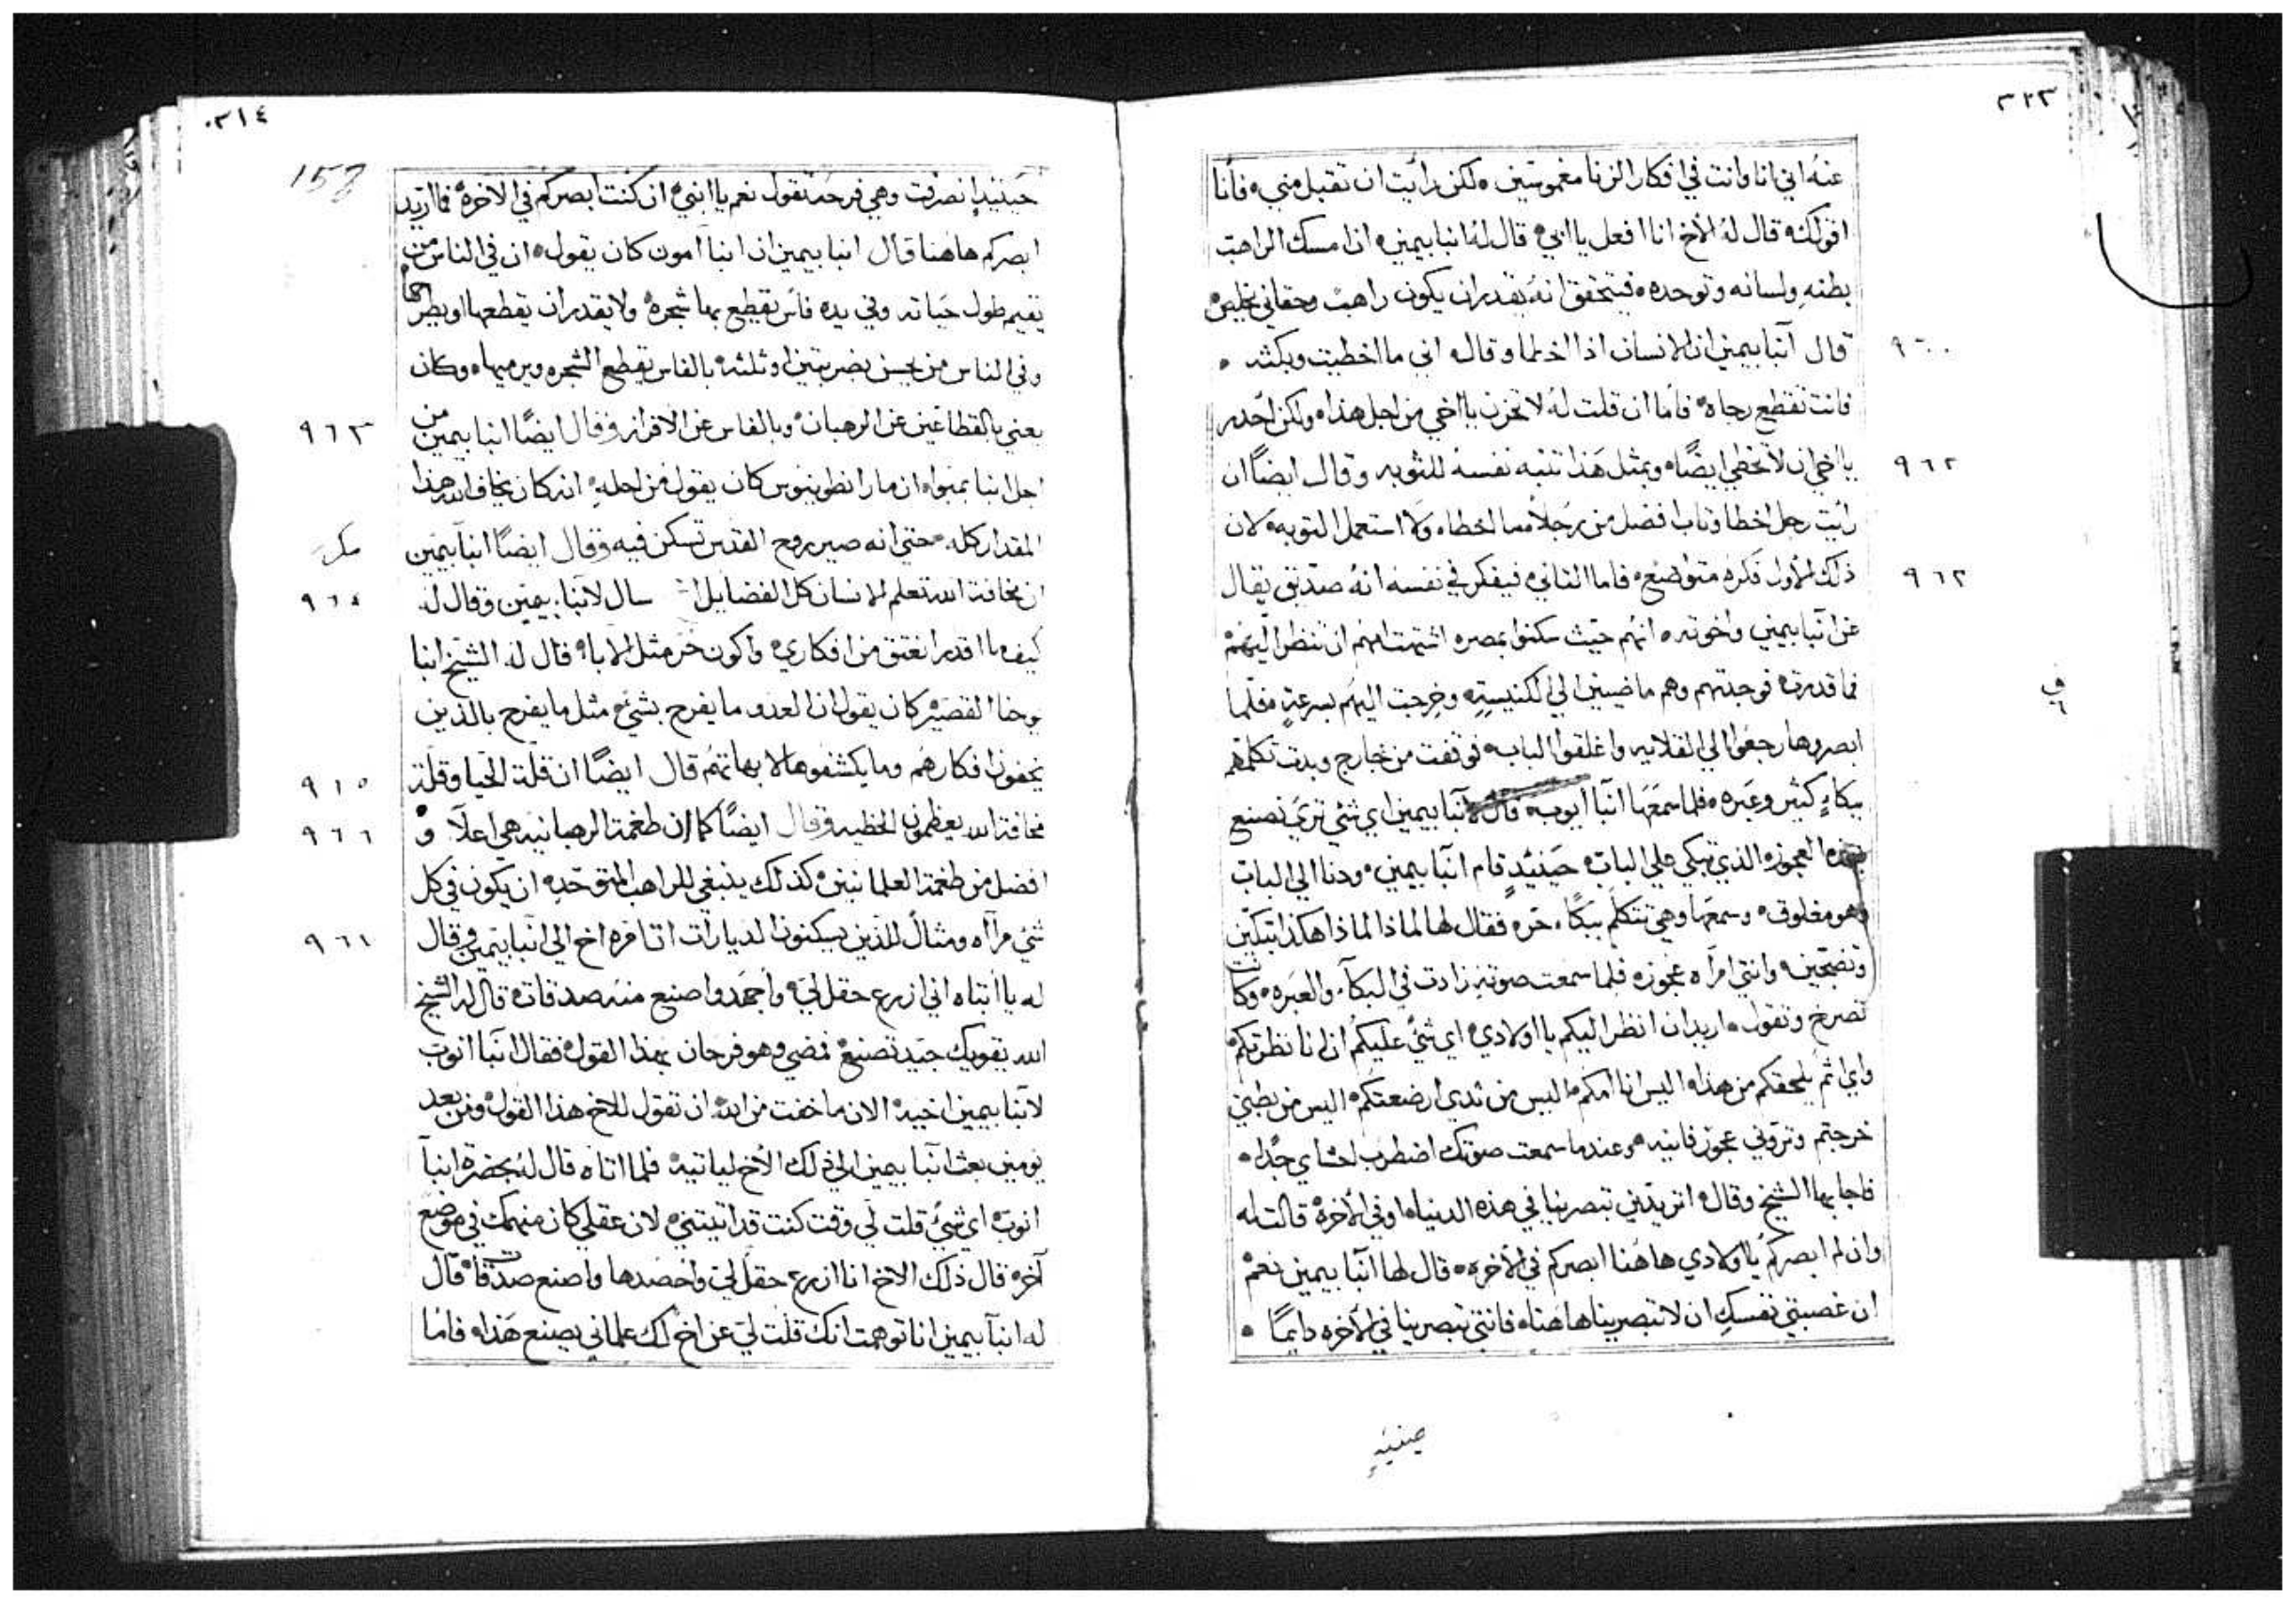 ٣٢٣
عنه اني انا وانت في افكار الزنا مغموسين ٥ لكن رايت ان تقبل مني ٥ فانا
اقولك ٥ قال له الاخ انا افعل يا ابي ٥ قال له انبا بيمين ٥ اذا مسك الراهب
بطنه ولسانه وتوحده ٥ فيتحقق انه يقدر ان يكون راهب وحقاني
٩٦٠
قال آنبا بيمين ان الانسان اذا اخطا وقال ٥ اني ما اخطيت ويكته ٥
فانت تقطع رجاه ٥ فاما ان قلت له لا تحزن يا اخي من اجل هذا ٥ ولكن احدر
يا اخي ان لا تخطي ايضًا ٥ وبمثل هذا تنبه نفسه للثوبه وقال ايضًا ان
٩٦٢
رايت رجل اخطا وتاب افضل من رجلاً ما اخطا ٥ ولا استعمل التوبه ٥ لان
ذلك الاول فكره متواضع ٥ فاما التاني ٥ فيفكر في نفسه انه صديق يقال
٩٦٢
عن آنبا بيمين واخوته ٥ انهم حيث سكنوا بمصر ٥ اشتهت امهم ان تنظر اليهم
فما قدرت ٥ فوجدتهم وهم ماضيين الي الكنيسة ٥ وخرجت اليهم بسرعة ٥ فلما
ابصروها رجعوا الي القلايه واغلقوا الباب ٥ فوقفت من خارج وبدت تكلمهم
ببكاء كثير وعبره ٥ فلما سمعها آنبا ايوب ٥ قال لآنبا بيمين اي شي تري نصنع
بهده العجوزه الذي تبكي علي الباب ٥ حينيدٍ قام آنبا بيمين ٥ ودنا الي الباب
وهو مغلوق ٥ وسمعها وهي تتكلم ببكاء حره فقال لها لماذا لماذا هكذا تبكين
وتضجين ٥ وانتي امراه عجوزه فلما سمعت صوته زادت في البكآء والعبره ٥ وكانت
تصرخ وتقول ٥ اريد ان انظر اليكم يا اولادي ٥ اي شي عليكم ان انا نظرتكم ٥
واي اثم يلحقكم من هذا ٥ اليس انا امكم ٥ اليس من ثدي ارضعتكم ٥ اليس من بطني
خرجتم وتروني عجوز فانيه ٥ وعندما سمعت صوتك اضطرب احشاي جدًا ٥
فاجابها الشيخ وقال ٥ اتريدين تبصرينا في هذه الدنيا ٥ او في الآخره ٥ قالت له
وان لم ابصركم يا اولادي هاهنا ابصركم في الآخره ٥ قال لها آنبا بيمين نعم
ان غصبتي نفسك ان لا تبصرينا هاهنا ٥ فانتي تبصرينا في الآخره دايمًا ٥
حينيدٍ
٣١٤
153
حينيدٍ انصرفت وهي فرحه تقول نعم يا ابني ٥ ان كنت ابصركم في الآخره ٥ فما اريد
ابصركم هاهنا قال انبا بيمين ان انبا آمون كان يقول ٥ ان في الناس من
يقيم طول حياته وفي يده فاس يقطع بها شجره ٥ ولا يقدر ان يقطعها او يطرحها
وفي الناس من يحسن بضربتين او ثلثه ٥ بالفاس يقطع الشجره ويرميها ٥ وكان
يعني بالقطاعين عن الرهبان ٥ وبالفاس عن الافراز وقال ايضًا انبا بيمين من
٩٦٣
اجل انبا بمبوا ٥ ان مار انطونيوس كان يقول من اجله ٥ انه كان يخاف الله هذا
المقدار كله ٥ حتي انه صير روح القدس تسكن فيه وقال ايضًا انبا بيمين
مكرر
ان مخافة الله تعلم الانسان كل الفضايل سال لآنبا بيمين وقال له
٩٦٤
كيف ما اقدر انعتق من افكاري ٥ واكون حر مثل الابا ٥ قال له الشيخ انبا
يوحنا القصير كان يقول ان العدو ما يفرح بشي ٥ مثل ما يفرح بالذين
يخفون افكارهم وما يكشفوها لابهاتهم قال ايضًا ان قلة الحيا وقلة
٩٦٥
مخافة الله يعظمون الخطيه وقال ايضًا كما ان طغمة الرهبانيه هي اعلا و
٩٦٦
افضل من طغمة العلمانيين ٥ كذلك ينبغي للراهب المتوحد ٥ ان يكون في كل
شي مرآه ومثال للذين يسكنون الديارات اتا مره اخ الي آنبا بيمين وقال
٩٦٦
له يا ابتاه اني ازرع حقل لي ٥ واجهد واصنع منه صدقات ٥ قال له الشيخ
الله يقويك جيد تصنع ٥ فمضي وهو فرحان بهذا القول ٥ فقال آنبا انوب
لآنبا بيمين اخيه ٥ الان ما خفت من الله ٥ ان تقول للاخ هذا القول ٥ ومن بعد
يومين بعث آنبا بيمين الي ذلك الاخ لياتيه ٥ فلما اتاه قال له بحضرة انبا
انوب ٥ اي شي قلت لي وقت كنت قد اتيتني ٥ لان عقلي كان منهمك في موضع
آخر ٥ قال ذلك الاخ انا ازرع حقل لي واحصدها واصنع صدقات ٥ قال
له انبآ بيمين انا توهمت انك قلت لي عن اخ لك علماني يصنع هذا ٥ فاما